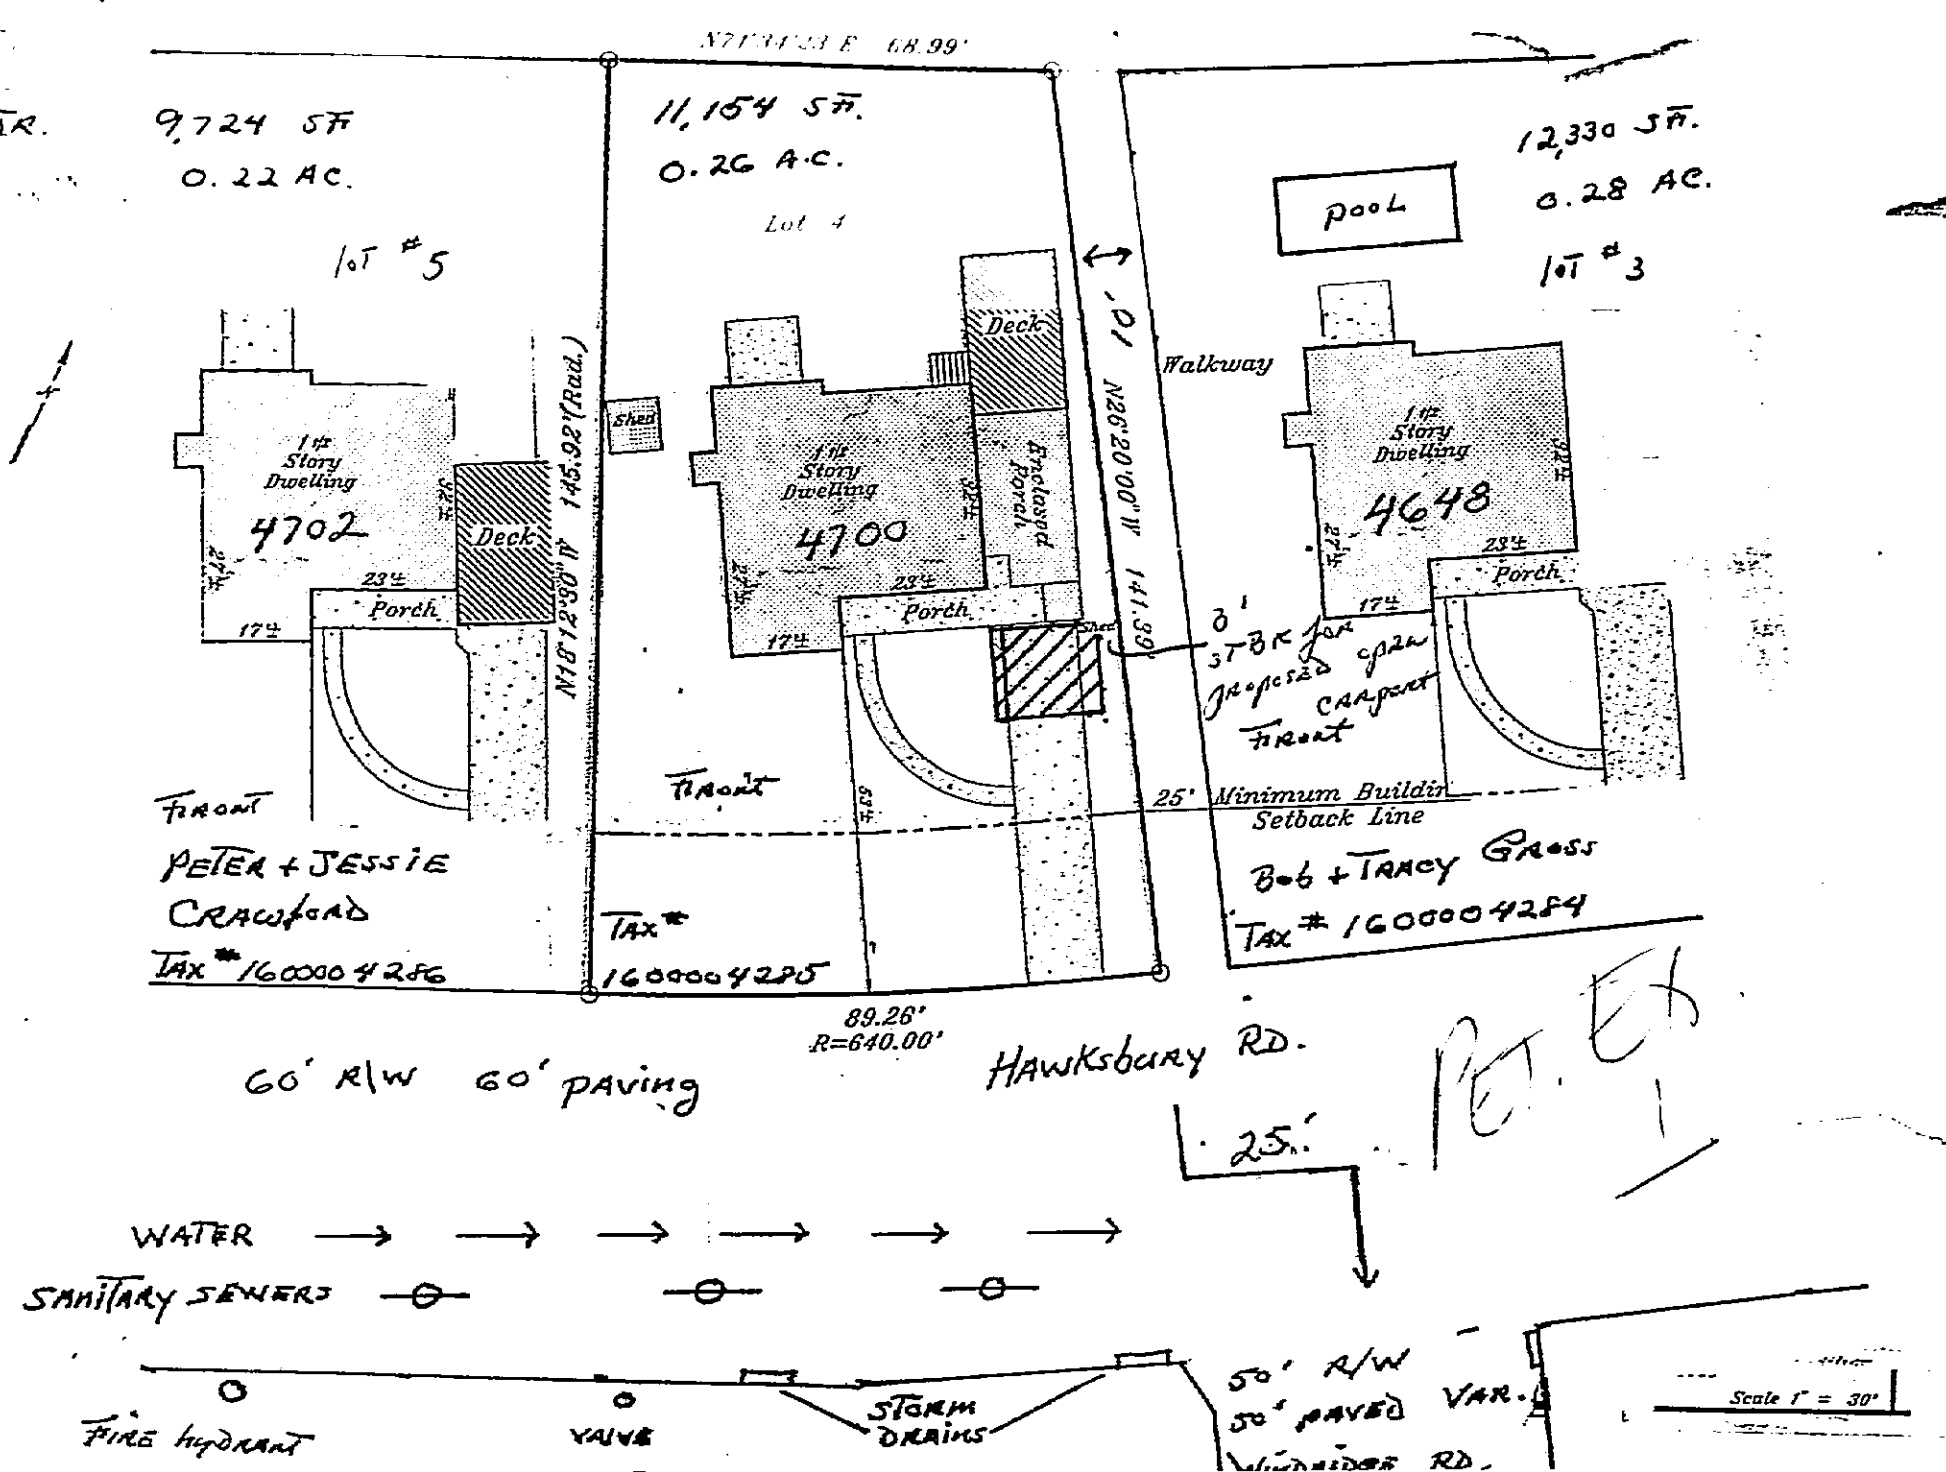 68.99'
9,724 SF
0.22 AC.
lot #5
11,154 SF.
0.26 A.C.
Lot 4
12,330 SF.
0.28 AC.
lot #3
POOL
Deck
10'
Walkway
N18°12'30"W 145.92'(Rad.)
Shed
N26°20'00"W 141.99'
1 1/2
Story
Dwelling
4702
32'±
27'±
23'±
17'±
Deck
Porch
1 1/2
Story
Dwelling
4700
32'±
27'±
23'±
17'±
Enclosed
Porch
Porch
Shed
1 1/2
Story
Dwelling
4648
32'±
27'±
23'±
17'±
Porch
STBK for
proposed open
carport
Front
Front
Front
53'±
25' Minimum Buildin
Setback Line
PETER + JESSIE
CRAWFORD
TAX # 1600004286
TAX #
1600004285
Bob + TRACY GROSS
TAX # 1600004284
89.26'
R=640.00'
60' R/W 60' paving
HAWKSbURY RD.
PET. EX
1
25'
WATER
SANITARY SEWERS
FIRE hyDRANT
VALVE
STORM
DRAINS
50' R/W
50' PAVED VAR.
RD.
Scale 1" = 30'